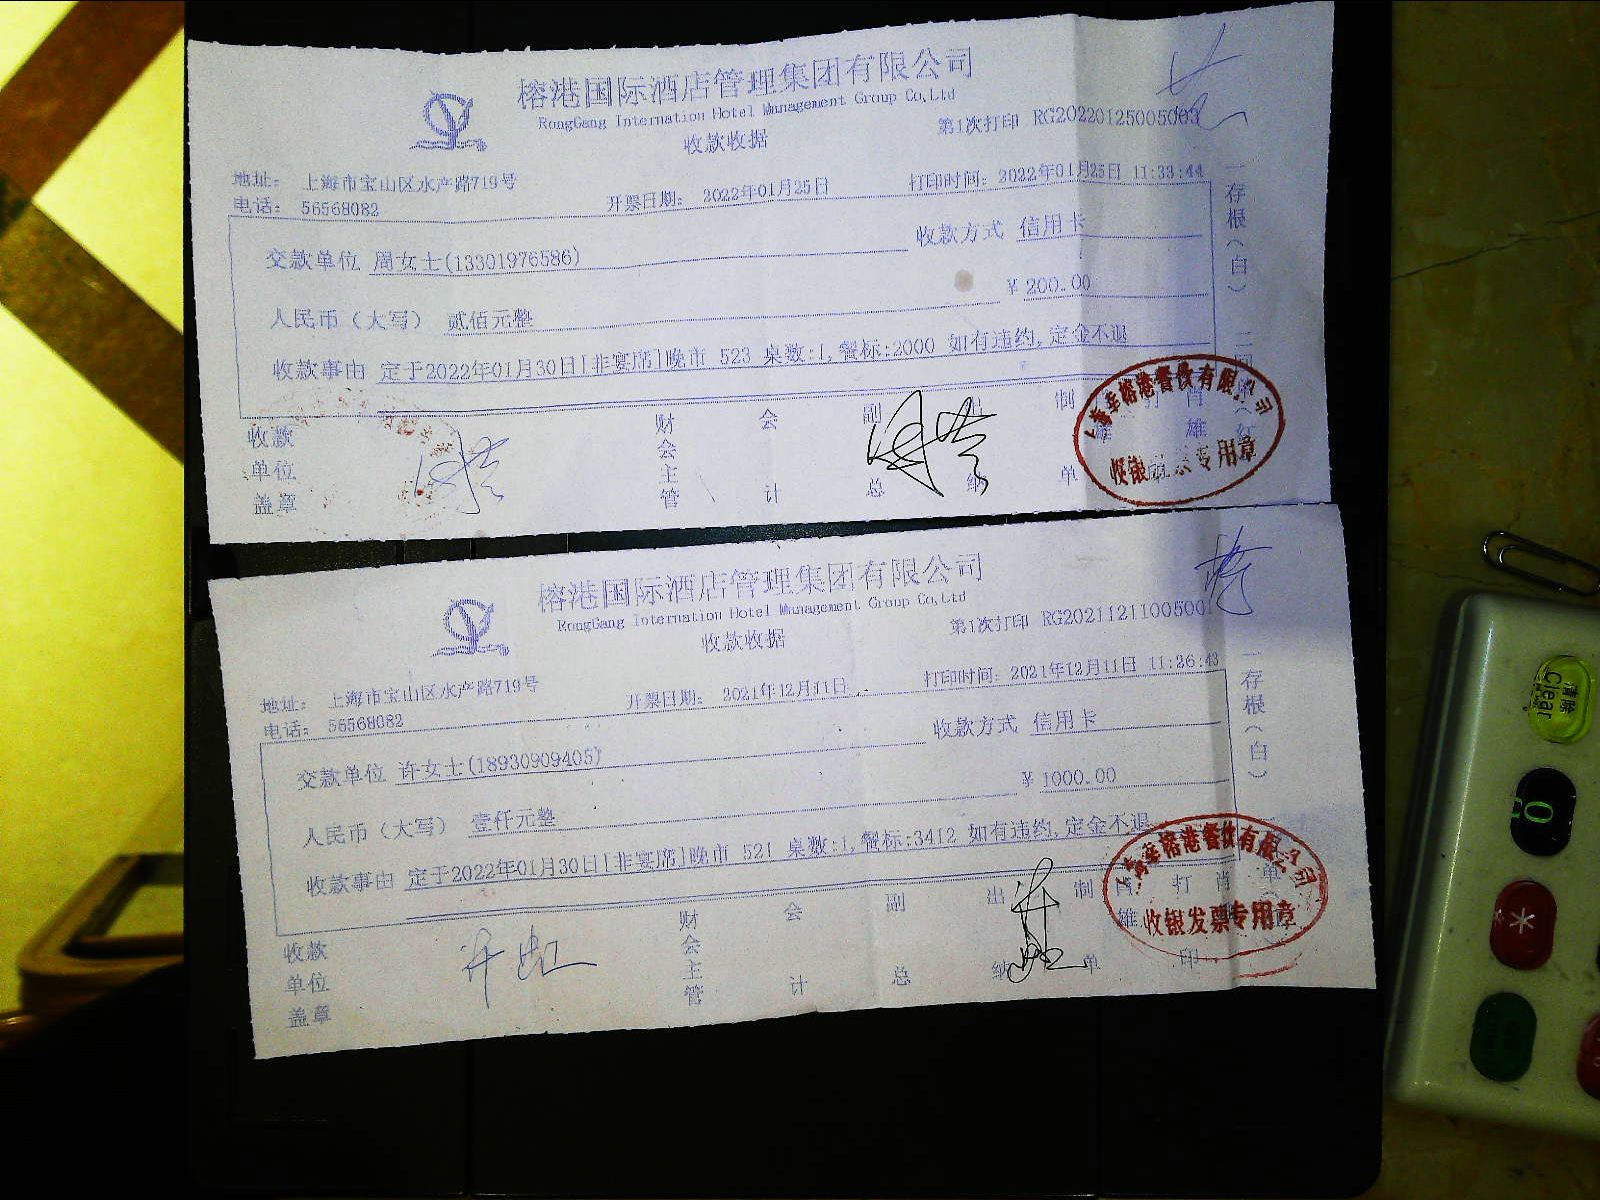 榕港国际酒店管理集团有限公司
RongGang Internation Hotel Management Group Co,Ltd
收款收据
第1次打印 RG20220125005003
地址： 上海市宝山区水产路719号
电话： 56568082
开票日期： 2022年01月25日
打印时间：2022年01月25日 11:33:44
交款单位 周女士(13301976586)
收款方式 信用卡
人民币（大写） 贰佰元整
￥200.00
收款事由 定于2022年01月30日[非宴席]晚市 523 桌数:1,餐标:2000 如有违约,定金不退
收款单位盖章
财会主管
会计
副总
出纳
制单
打
肖雄
一存根（白）
二
上海幸榕港餐饮有限公司
收银发票专用章
榕港国际酒店管理集团有限公司
RongGang Internation Hotel Management Group Co,Ltd
收款收据
第1次打印 RG20211211005001
地址： 上海市宝山区水产路719号
电话： 56568082
开票日期： 2021年12月11日
打印时间：2021年12月11日 11:26:43
交款单位 许女士(18930909405)
收款方式 信用卡
人民币（大写） 壹仟元整
￥1000.00
收款事由 定于2022年01月30日[非宴席]晚市 521 桌数:1,餐标:3412 如有违约,定金不退
收款单位盖章
财会主管
会计
副总
出纳
制单
打印
肖雄
一存根（白）
上海幸榕港餐饮有限公司
收银发票专用章
清除
Clear
0
*